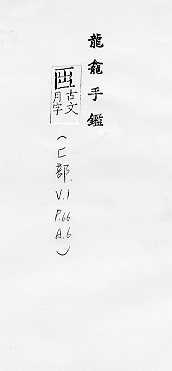 龍龕手鑑
古文
月字
(匚部. V.1 P.66 A.6)